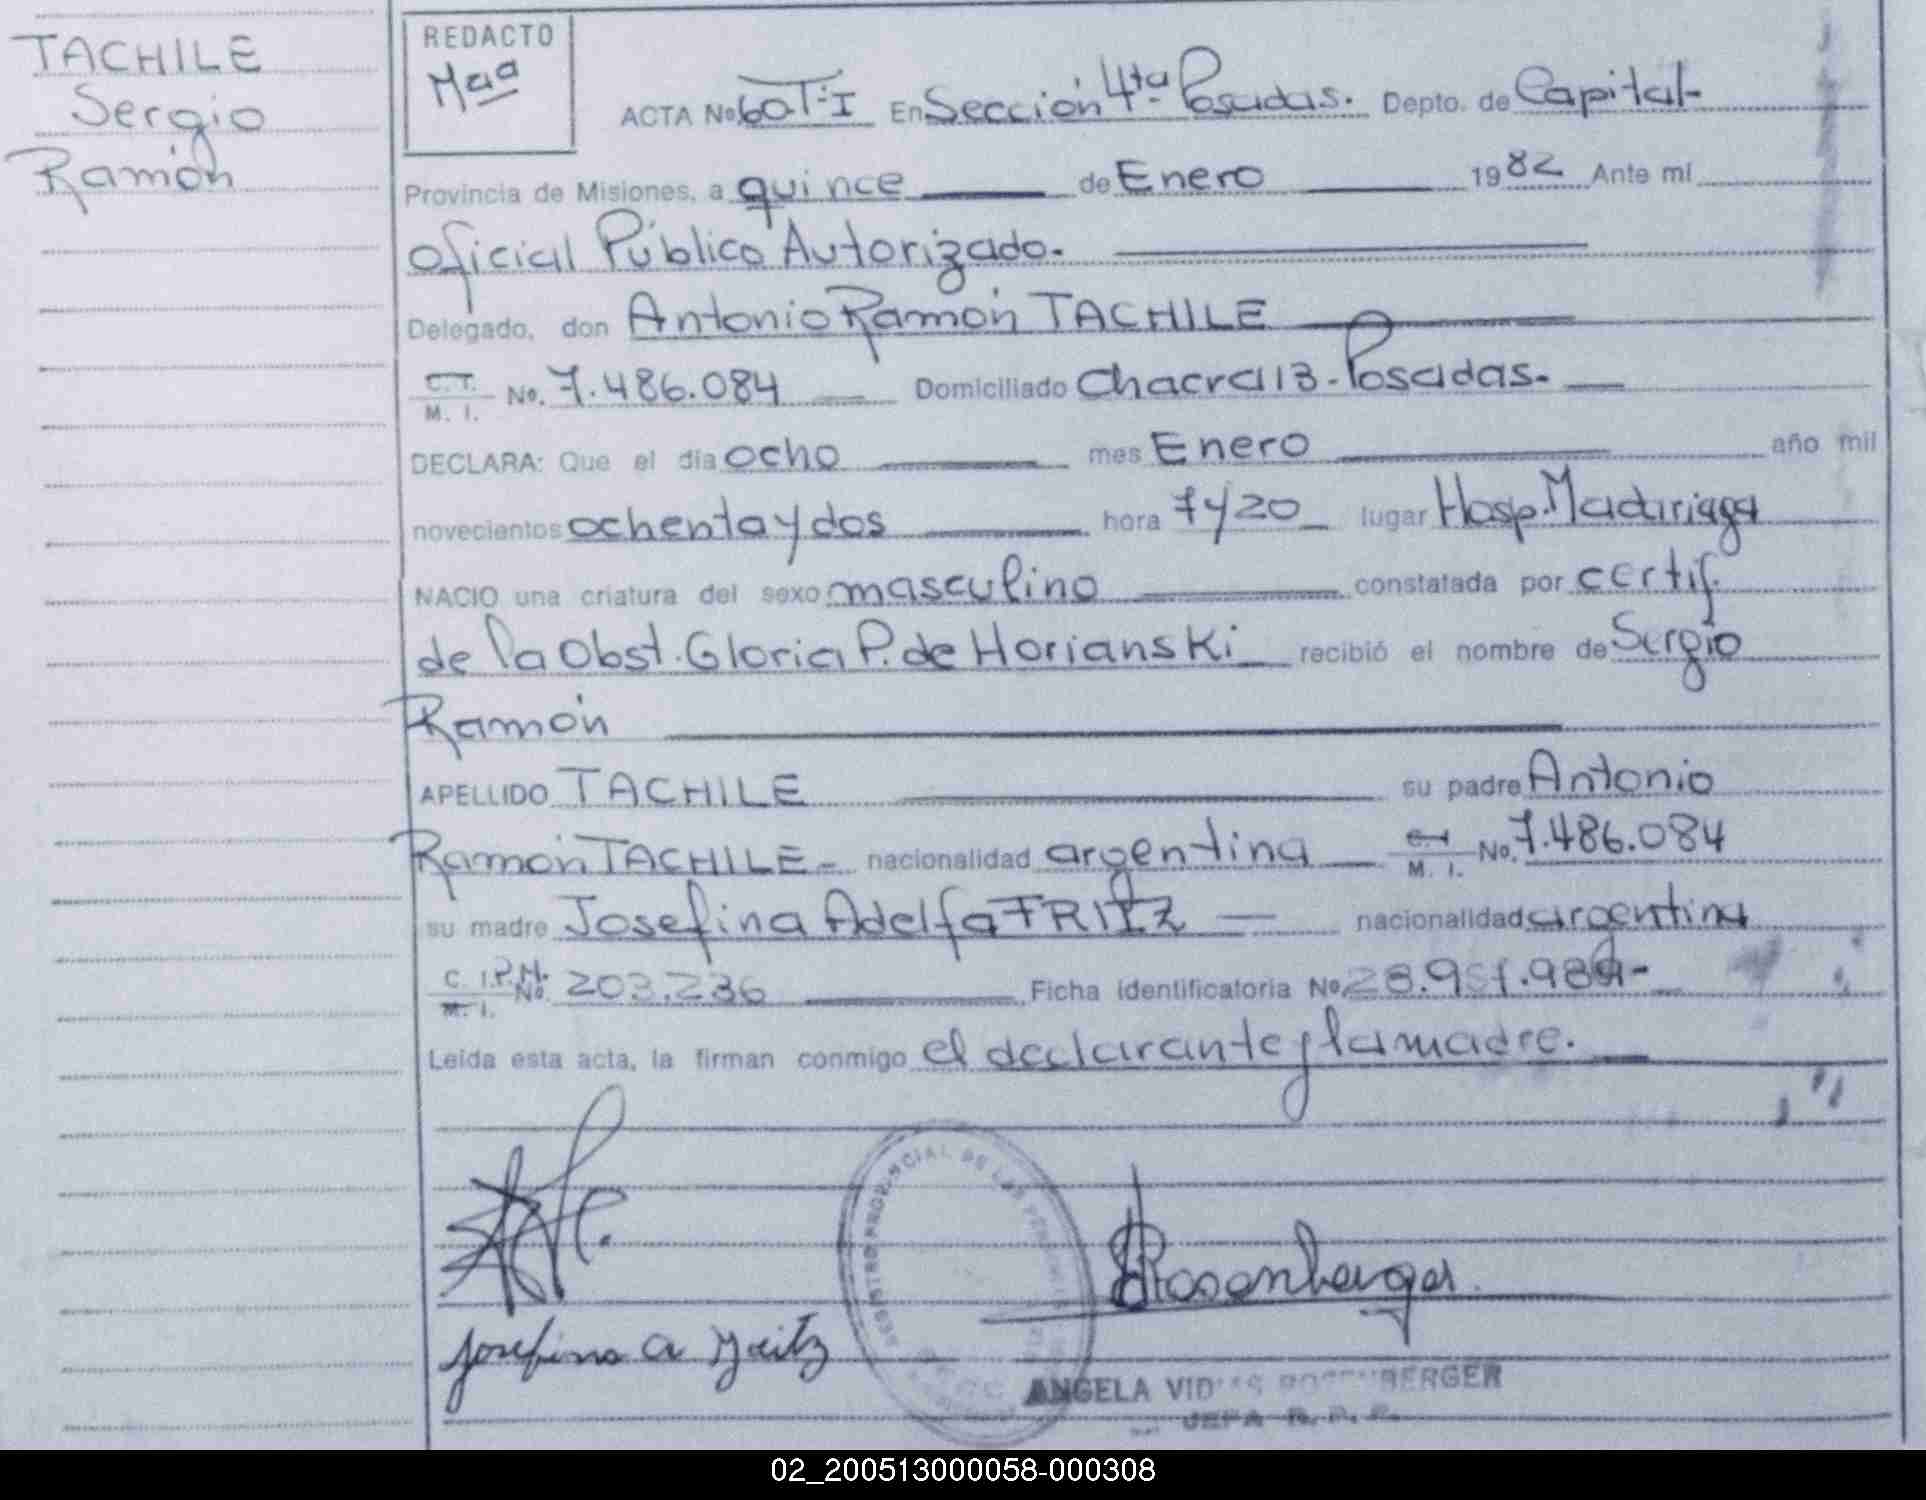 TACHILE
Sergio
Ramón
REDACTO
Maa
ACTA No. 60-T-I En Sección 4ta Posadas. Depto. de Capital-
Provincia de Misiones, a quince de Enero 1982 Ante mí
Oficial Público Autorizado.
Delegado, don Antonio Ramón TACHILE
C.I. M. I. No. 7.486.084 Domiciliado Chacra 13-Posadas.-
DECLARA: Que el día ocho mes Enero año mil
novecientos ochenta y dos hora 7 y 20 lugar Hosp. Madariaga
NACIO una criatura del sexo masculino constatada por certif.
de la Obst. Gloria P. de Horianski recibió el nombre de Sergio
Ramón
APELLIDO TACHILE su padre Antonio
Ramón TACHILE- nacionalidad argentina C.I. M. I. No. 7.486.084
su madre Josefina Adelfa FRITZ nacionalidad argentina
C. I.P.M. M. I. No. 203.236 Ficha identificatoria No. 28.951.989-
Leída esta acta, la firman conmigo el declarante y la madre.
REGISTRO PROVINCIAL DE LAS PERSONAS
Rosenberger
Josefina A Fritz
ANGELA ROSENBERGER
JEFA R. P. P.
02_200513000058-000308